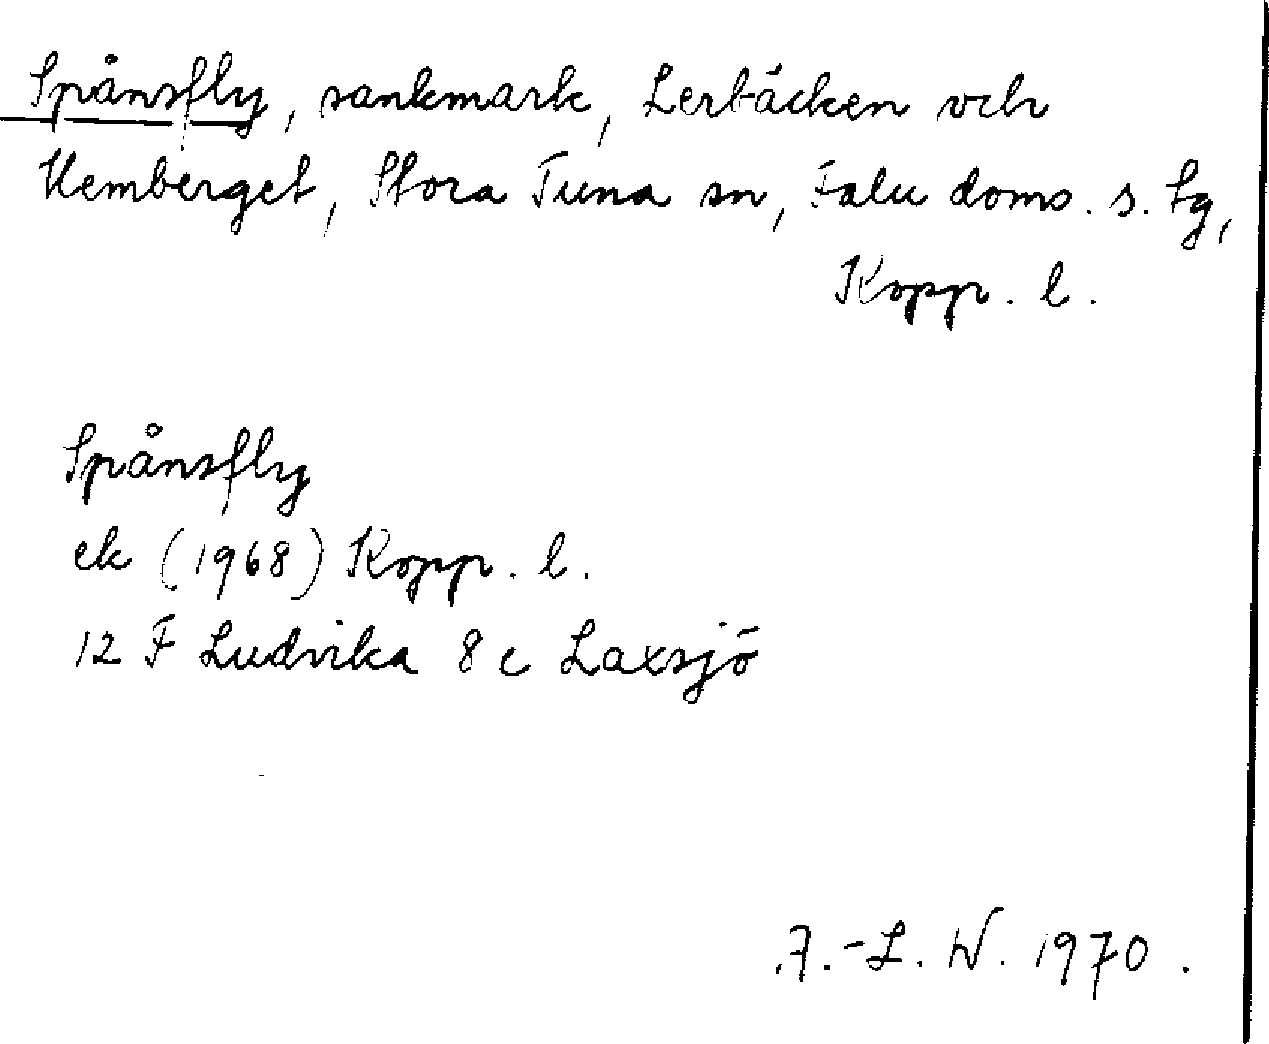 Spånsfly, sankmark, Lerbäcken och
Hemberget, Stora Tuna sn, Falu doms. s. tg,
Kopp. l.
Spånsfly
ek (1968) Kopp. l.
12 F Ludvika 8 c Laxsjö
A.-L. W. 1970.